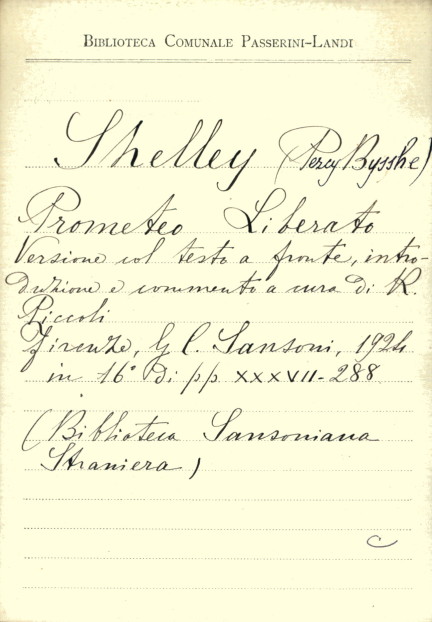 Biblioteca Comunale Passerini-Landi
Shelley (Percy Bysshe)
Prometeo Liberato
Versione col testo a fronte, intro-
duzione e commento a cura di R.
Piccoli
Firenze, G. C. Sansoni, 1924
in 16° di pp XXXVII-288
(Biblioteca Sansoniana
Straniera)
C